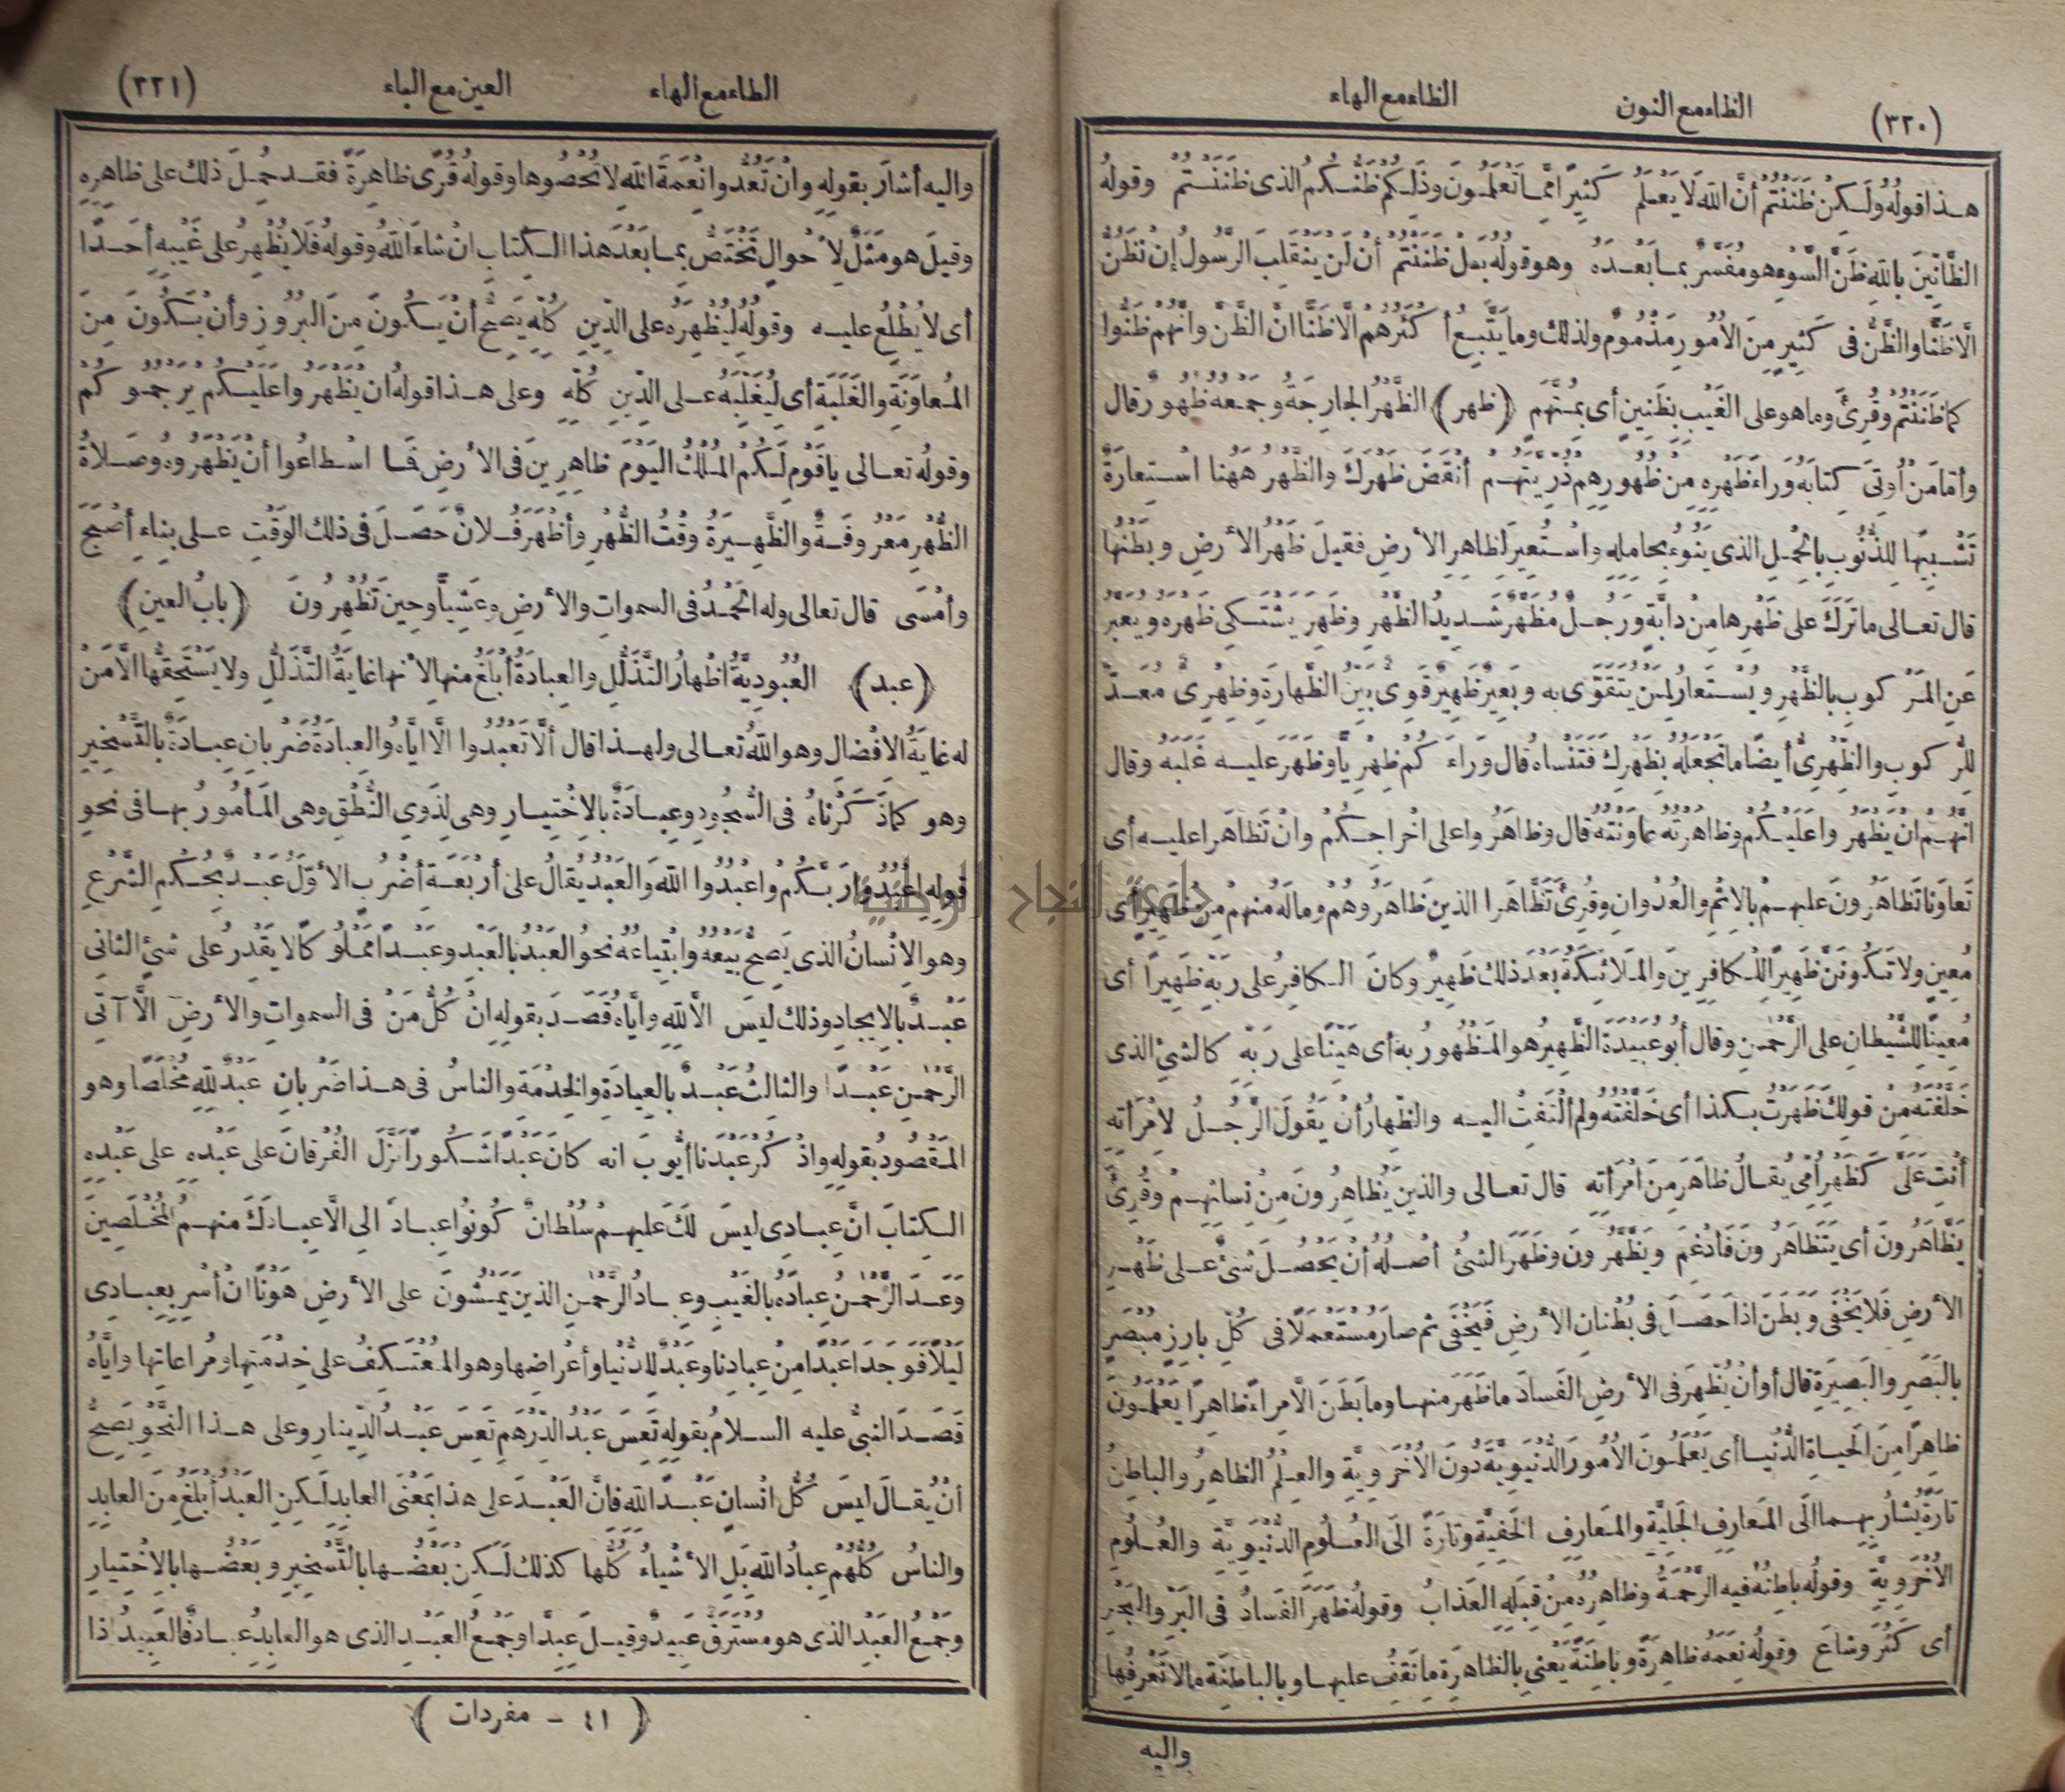 (٣٢٠) الظاء مع النون الظاء مع الهاء
هذا قولُهُ ولَكِنْ ظَنَنْتُمْ أنَّ اللهَ لَا يَعْلَمُ كَثِيرًا مِمَّا تَعْلَمُونَ وذَلِكُمْ ظَنُّكُمُ الذى ظَنَنْتُمْ وقولُهُ
الظَّانِّينَ باللهِ ظَنَّ السَّوْءِ هو مُفَسَّرٌ بما بَعْدَهُ وهو قولُهُ بَلْ ظَنَنْتُمْ أنْ لَنْ يَنْقَلِبَ الرَّسُولُ إنْ نَظُنُّ
الَّا ظَنًّا والظَّنُّ فى كَثِيرٍ مِنَ الأُمُورِ مَذْمُومٌ ولذلك وما يَتَّبِعُ أكْثَرُهُمْ الَّا ظَنًّا انَّ الظَّنَّ وأنَّهُمْ ظَنُّوا
كما ظَنَنْتُمْ وقُرِئَ وما هو على الغَيْبِ بِظَنِينٍ أى بمُتَّهَمٍ (ظهر) الظَّهْرُ الجارِحَةُ وجَمْعُهُ ظُهُورٌ قال
وأمَّا مَنْ أُوتِىَ كِتابَهُ وَرَاءَ ظَهْرِهِ مِنْ ظُهُورِهِمْ ذُرِّيَّتَهُمْ أنْقَضَ ظَهْرَكَ والظَّهْرُ هَهُنا اسْتِعارَةٌ
تَشْبِيهًا لِلذُّنُوبِ بالحِمْلِ الذى يَنُوءُ بحامِلِهِ واسْتُعِيرَ لِظاهِرِ الأرضِ فقيلَ ظَهْرُ الأرضِ وبَطْنُها
قال تعالى ما تَرَكَ على ظَهْرِها مِنْ دابَّةٍ ورَجُلٌ مُظَهَّرٌ شَدِيدُ الظَّهْرِ وظَهِرٌ يَشْتَكِى ظَهْرَهُ ويُعَبَّرُ
عَنِ المَرْكُوبِ بالظَّهْرِ ويُسْتَعارُ لِمَنْ يُتَقَوَّى به وبَعِيرٌ ظَهِيرٌ قَوِىٌّ بَيِّنُ الظَّهارَةِ وظِهْرِىٌّ مُعَدٌّ
لِلرُّكُوبِ والظِّهْرِىُّ أيضًا ما تَجْعَلُهُ بِظَهْرِكَ فَتَنْساهُ قال وَرَاءَكُمْ ظِهْرِيًّا وظَهَرَ عليه غَلَبَهُ وقال
انَّهُمْ انْ يَظْهَرُوا عَلَيْكُمْ وظاهَرْتُهُ عاوَنْتُهُ قال وظاهَرُوا على اخْراجِكُمْ وانْ تَظَاهَرا عليه أى
تَعاوَنا تَظَاهَرُونَ عليهِمْ بالاثْمِ والعُدْوانِ وقُرِئَ تَظَّاهَرا الذينَ ظَاهَرُوهُمْ وما لَهُ منهم مِنْ ظَهِيرٍ أى
مُعِينٍ ولا تَكُونَنَّ ظَهِيرًا لِلْكافِرِينَ والمَلَائِكَةُ بَعْدَ ذلك ظَهِيرٌ وكانَ الكافِرُ على رَبِّهِ ظَهِيرًا أى
مُعِينًا لِلشَّيْطانِ على الرَّحْمنِ وقال أبُو عُبَيْدَةَ الظَّهِيرُ هو المَظْهُورُ به أى هَيِّنًا على رَبِّهِ كالشئِ الذى
خَلَّفْتَهُ مِنْ قولِكَ ظَهَرْتُ بكذا أى خَلَّفْتُهُ ولم ألْتَفِتْ اليه والظِّهارُ أنْ يَقُولَ الرَّجُلُ لامْرَأتِهِ
أنْتِ عَلَىَّ كَظَهْرِ أُمِّى يُقالُ ظاهَرَ مِنَ امْرَأتِهِ قال تعالى والذينَ يُظَاهِرُونَ مِنْ نِسائِهِمْ وقُرِئَ
يَظَّاهَرُونَ أى يَتَظَاهَرُونَ فَأُدْغِمَ ويَظَّهَّرُونَ وظَهَرَ الشئُ أصْلُهُ أنْ يَحْصُلَ شئٌ على ظَهْرِ
الأرضِ فَلا يَخْفَى وبَطَنَ اذا حَصَلَ فى بُطْنانِ الأرضِ فَيَخْفَى ثم صارَ مُسْتَعْمَلًا فى كُلِّ بارِزٍ مُبْصَرٍ
بالبَصَرِ والبَصِيرَةِ قال أوْ أنْ يُظْهِرَ فى الأرضِ الفَسادَ ما ظَهَرَ منها وما بَطَنَ الَّا مِراءً ظاهِرًا يَعْلَمُونَ
ظاهِرًا مِنَ الحَياةِ الدُّنْيا أى يَعْلَمُونَ الأُمُورَ الدُّنْيَوِيَّةَ دُونَ الأُخْرَوِيَّةِ والعِلْمُ الظاهِرُ والباطِنُ
تارَةً يُشارُ بِهِما الَى المَعارِفِ الجَلِيَّةِ والمَعارِفِ الخَفِيَّةِ وتارَةً الَى العُلُومِ الدُّنْيَوِيَّةِ والعُلُومِ
الأُخْرَوِيَّةِ وقولُهُ باطِنُهُ فيه الرَّحْمَةُ وظاهِرُهُ مِنْ قِبَلِهِ العَذابُ وقولُهُ ظَهَرَ الفَسَادُ فى البَرِّ والبَحْرِ
أى كَثُرَ وشاعَ وقولُهُ نِعَمَهُ ظاهِرَةً وباطِنَةً يَعْنِى بالظاهِرَةِ ما نَقِفُ عليها وبالباطِنَةِ ما لا نَعْرِفُها
واليه
الظاء مع الهاء العين مع الباء (٣٢١)
واليه أشارَ بقولِهِ وانْ تَعُدُّوا نِعْمَةَ اللهِ لا تُحْصُوها وقولُهُ قُرًى ظاهِرَةً فقد حُمِلَ ذلك على ظاهِرِهِ
وقيلَ هو مَثَلٌ لأحْوالٍ تَخْتَصُّ بما بَعْدَ هذا الكتابِ انْ شاءَ اللهُ وقولُهُ فَلا يُظْهِرُ على غَيْبِهِ أحَدًا
أى لا يُطْلِعُ عليه وقولُهُ لِيُظْهِرَهُ على الدِّينِ كُلِّهِ يَصِحُّ أنْ يَكُونَ مِنَ البُرُوزِ وأنْ يَكُونَ مِنَ
المُعاوَنَةِ والغَلَبَةِ أى لِيُغَلِّبَهُ على الدِّينِ كُلِّهِ وعلى هذا قولُهُ انْ يَظْهَرُوا عَلَيْكُمْ يَرْجُمُوكُمْ
وقولُهُ تعالى ياقَوْمِ لَكُمُ المُلْكُ اليَوْمَ ظاهِرِينَ فى الأرضِ فَما اسْطاعُوا أنْ يَظْهَرُوهُ وصَلاةُ
الظُّهْرِ مَعْرُوفَةٌ والظَّهِيرَةُ وقْتُ الظُّهْرِ وأظْهَرَ فُلانٌ حَصَلَ فى ذلك الوَقْتِ على بِناءِ أصْبَحَ
وأمْسَى قال تعالى وله الحَمْدُ فى السمواتِ والأرضِ وعَشِيًّا وحِينَ تُظْهِرُونَ (بابُ العينِ)
(عبد) العُبُودِيَّةُ اظْهارُ التَّذَلُّلِ والعِبادَةُ أبْلَغُ منها لأنها غايَةُ التَّذَلُّلِ ولا يَسْتَحِقُّها الَّا مَنْ
له غايَةُ الافْضالِ وهو اللهُ تعالى ولهذا قال ألَّا تَعْبُدُوا الَّا ايَّاهُ والعِبادَةُ ضَرْبانِ عِبادَةٌ بالتَّسْخِيرِ
وهو كما ذَكَرْناهُ فى السُّجُودِ وعِبادَةٌ بالاخْتِيارِ وهى لِذَوِى النُّطْقِ وهى المَأْمُورُ بها فى نحوِ
قولِهِ اعْبُدُوا رَبَّكُمْ واعْبُدُوا اللهَ والعَبْدُ يُقالُ على أرْبَعَةِ أضْرُبٍ الأوَّلُ عَبْدٌ بحُكْمِ الشَّرْعِ
وهو الانْسانُ الذى يَصِحُّ بَيْعُهُ وابْتِياعُهُ نحوُ العَبْدُ بالعَبْدِ وعَبْدًا مَمْلُوكًا لا يَقْدِرُ على شئٍ الثانى
عَبْدٌ بالايجادِ وذلك ليسَ الَّا للهِ وايَّاهُ قَصَدَ بقولِهِ انْ كُلُّ مَنْ فى السمواتِ والأرضِ الَّا آتى
الرَّحْمنِ عَبْدًا والثالثُ عَبْدٌ بالعِبادَةِ والخِدْمَةِ والناسُ فى هذا ضَرْبانِ عَبْدٌ للهِ مُخْلَصًا وهو
المَقْصُودُ بقولِهِ واذْكُرْ عَبْدَنا أيُّوبَ انه كانَ عَبْدًا شَكُورًا نَزَّلَ الفُرْقانَ على عَبْدِهِ على عَبْدِهِ
الكتابَ انَّ عِبادِى ليسَ لَكَ عَلَيهِمْ سُلْطانٌ كُونُوا عِبادً الى الَّا عِبادَكَ منهم المُخْلَصِينَ
وَعَدَ الرَّحْمنُ عِبادَهُ بالغَيْبِ وعِبادُ الرَّحْمنِ الذينَ يَمْشُونَ على الأرضِ هَوْنًا انْ أسْرِ بِعِبادِى
لَيْلًا فَوَجَدَا عَبْدًا مِنْ عِبادِنا وعَبْدٌ لِلدُّنْيا وأعْراضِها وهو المُعْتَكِفُ على خِدْمَتِها ومُراعاتِها وايَّاهُ
قَصَدَ النبىُّ عليه السلامُ بقولِهِ تَعِسَ عَبْدُ الدِّرْهَمِ تَعِسَ عَبْدُ الدِّينارِ وعلى هذا النَّحْوِ يَصِحُّ
أنْ يُقالَ ليسَ كُلُّ انْسانٍ عَبْدًا للهِ فانَّ العَبْدَ على هذا بمَعْنَى العابِدِ لَكِنِ العَبْدُ أبْلَغُ مِنَ العابِدِ
والناسُ كُلُّهُمْ عِبادُ اللهِ بَلِ الأشْياءُ كُلُّها كذلك لَكِنْ بَعْضُها بالتَّسْخِيرِ وبَعْضُها بالاخْتِيارِ
وجَمْعُ العَبْدِ الذى هو مُسْتَرَقٌّ عَبِيدٌ وقيلَ عِبِدَّا وجَمْعُ العَبْدِ الذى هو العابِدُ عِبادٌ فالعَبِيدُ اذا
(٤١ - مفردات)